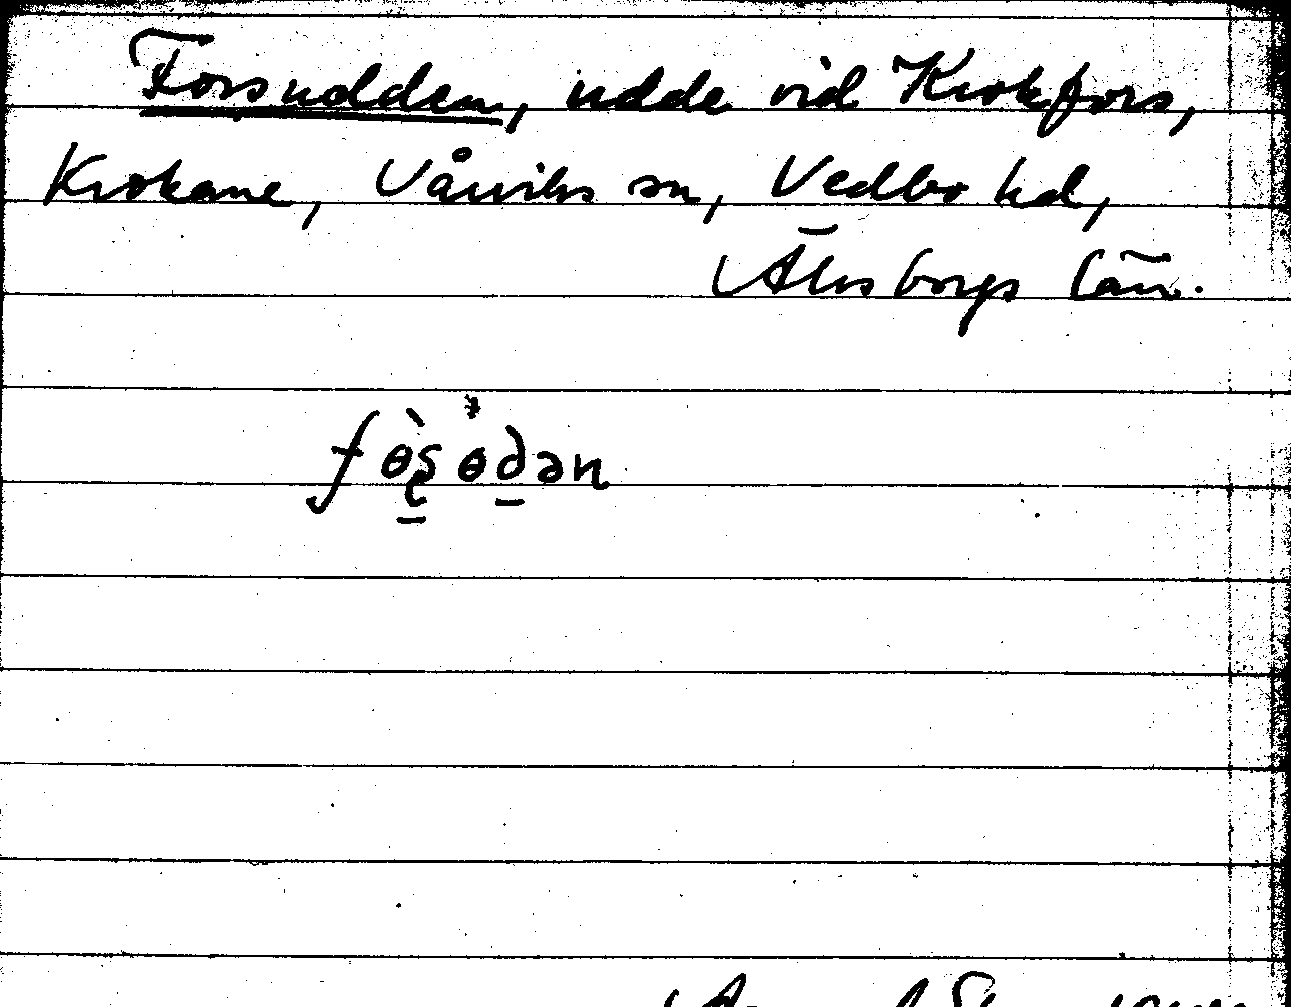 Forsudden, udde vid Krokfors,
Krokane, Vårviks sn, Vedbo hd,
Älvsborgs län.